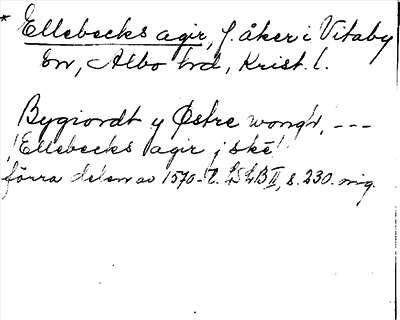 * Ellebecks agir, f. åker i Vitaby
sn, Albo hd, Krist. l.
Bygiordt y Østre wongh, ---
"Ellebecks agir j ske"
förra delen av 1570-t. LSLB II, s. 230. orig.